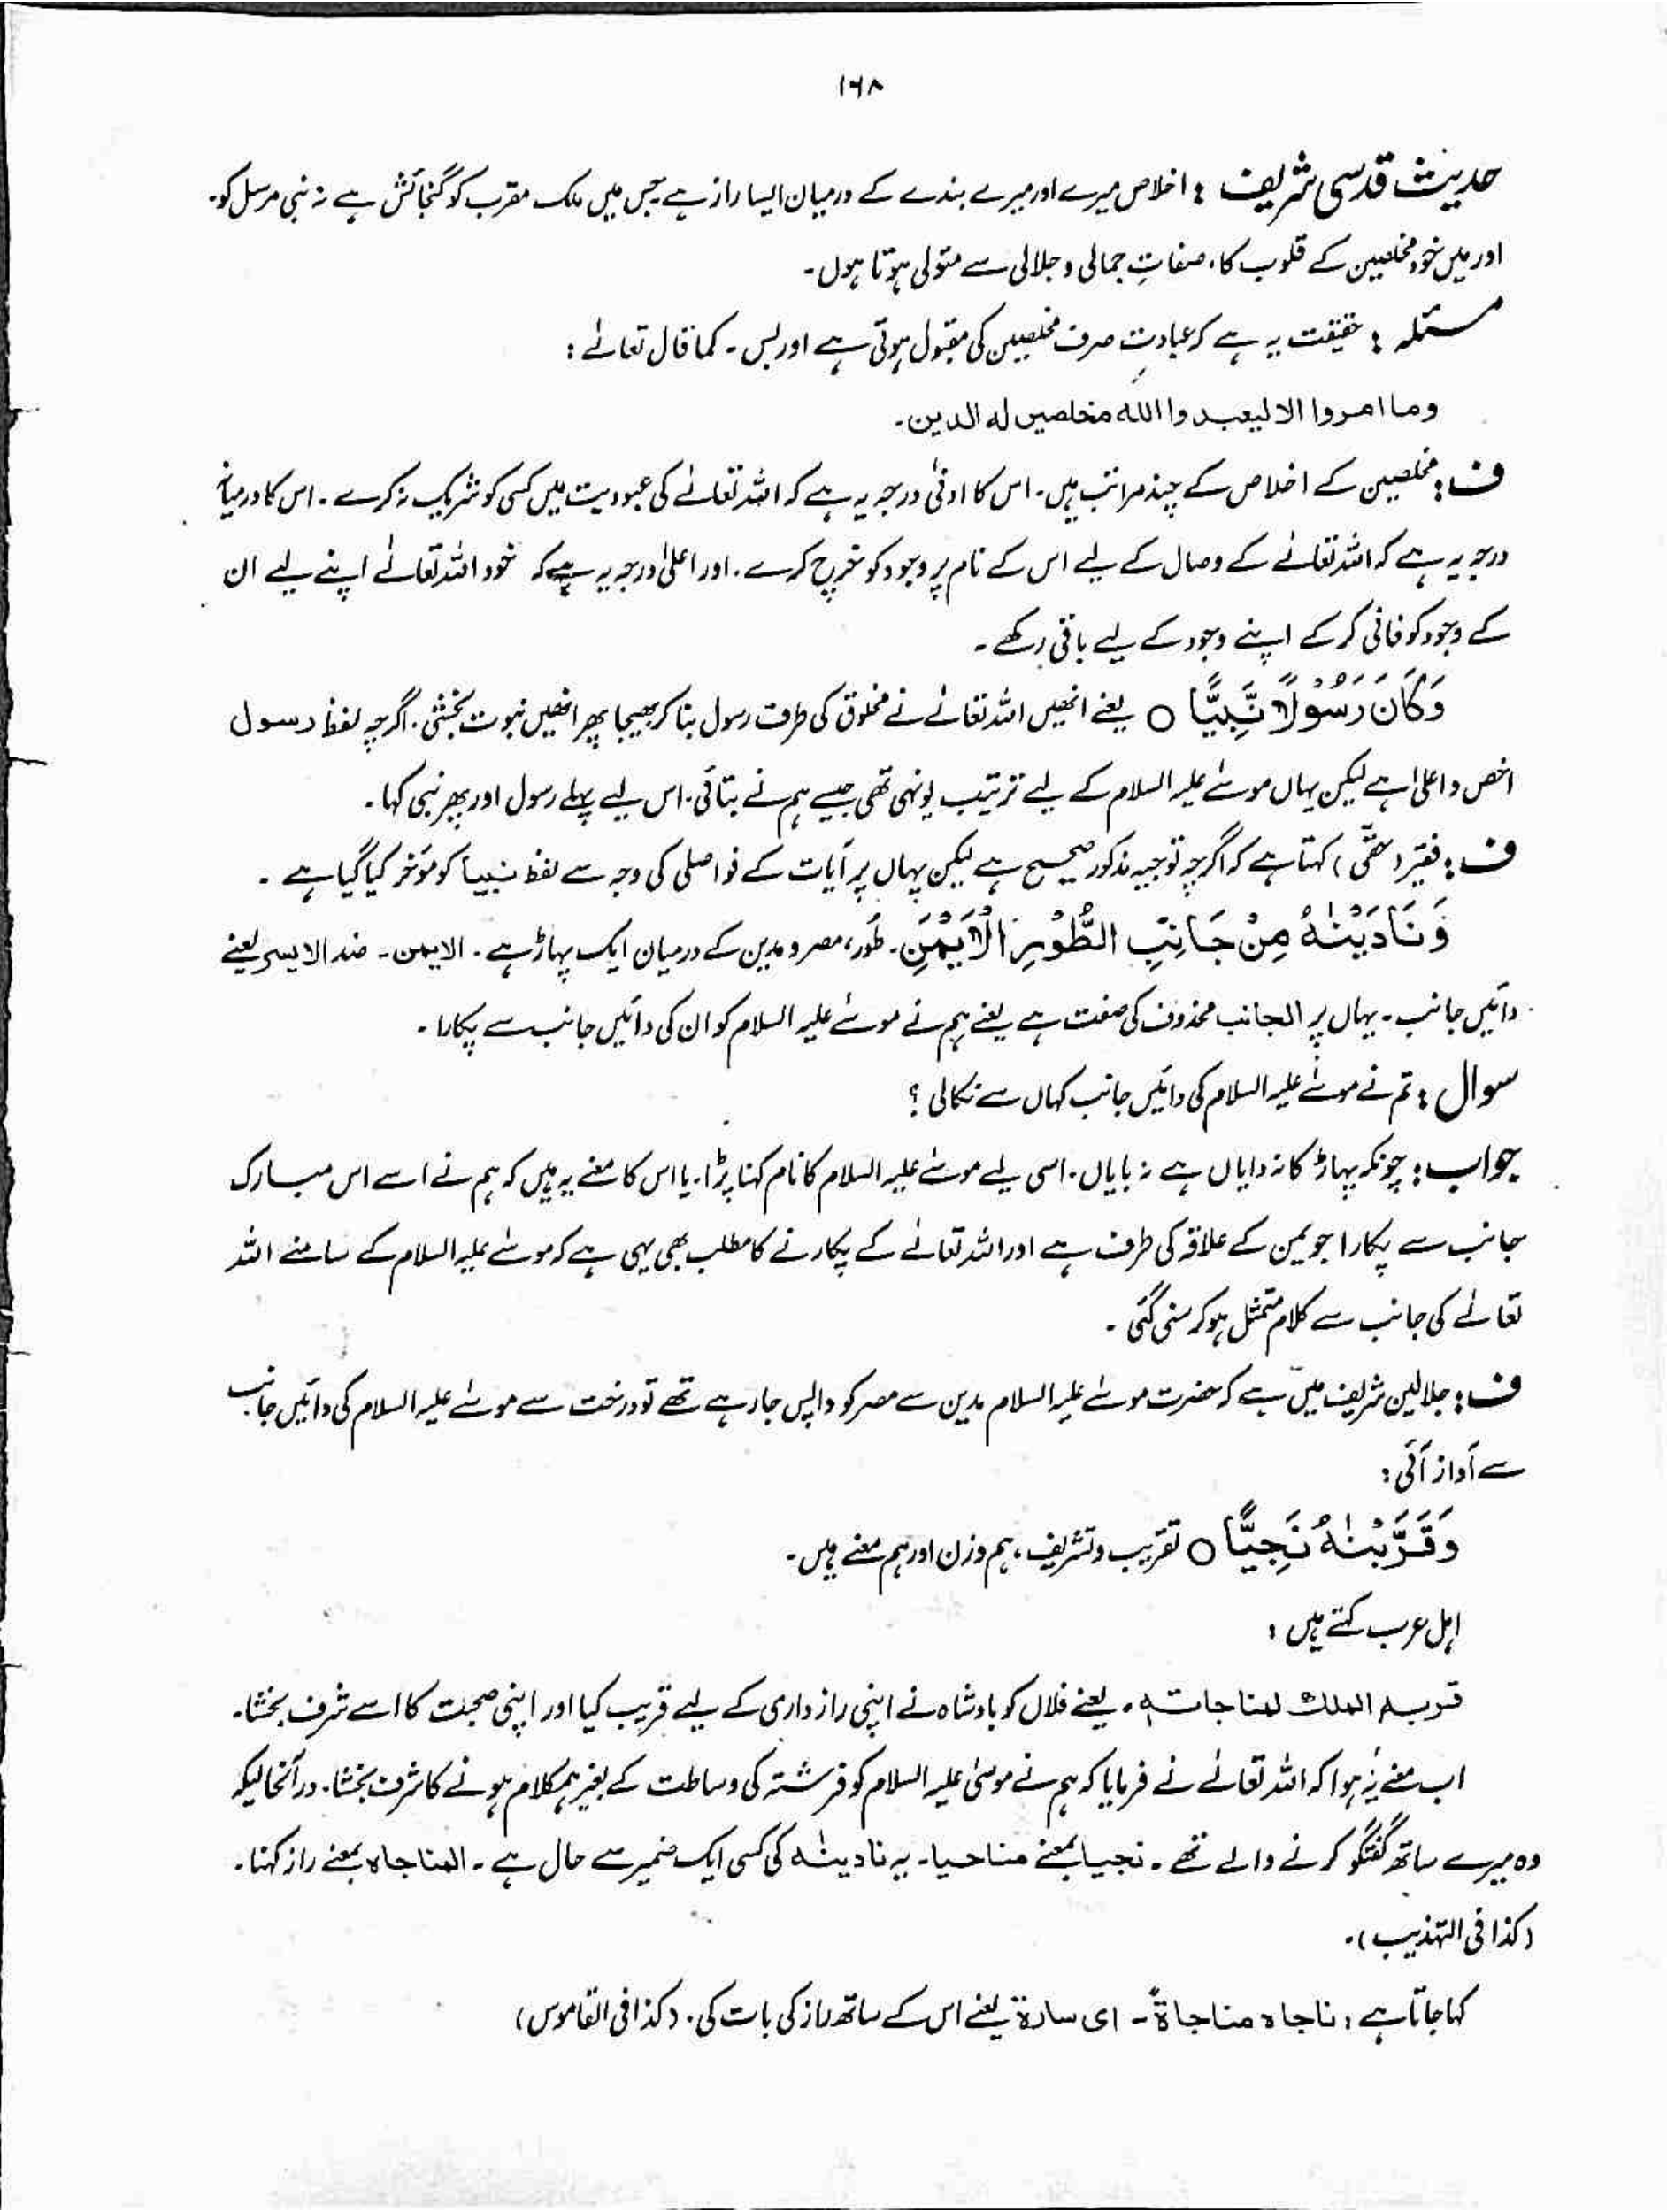 ۱۶۸
حدیث قدسی شریف : اخلاص میرے اور میرے بندے کے درمیان ایسا راز ہے جس میں ملک مقرب کو گنجائش ہے نہ نبی مرسل کو۔
اور میں خود مخلصین کے قلوب کا، صفاتِ جمالی و جلالی سے متولی ہوتا ہوں۔
مسئلہ : حقیقت یہ ہے کہ عبادت صرف مخلصین کی مقبول ہوتی ہے اور بس۔ کما قال تعالےٰ :
وما امروا الا لیعبدوا اللہ مخلصین لہ الدین۔
ف : مخلصین کے اخلاص کے چند مراتب ہیں۔ اس کا ادنیٰ درجہ یہ ہے کہ اللہ تعالےٰ کی عبودیت میں کسی کو شریک نہ کرے۔ اس کا درمیانہ
درجہ یہ ہے کہ اللہ تعالےٰ کے وصال کے لیے اس کے نام پر وجود کو خرچ کرے۔ اور اعلیٰ درجہ یہ ہے کہ خود اللہ تعالےٰ اپنے لیے ان
کے وجود کو فانی کر کے اپنے وجود کے لیے باقی رکھے۔
وَكَانَ رَسُوْلًا نَّبِيًّا ○ یعنے انھیں اللہ تعالےٰ نے مخلوق کی طرف رسول بنا کر بھیجا پھر انھیں نبوت بخشی۔ اگرچہ لفظ رسول
اخص و اعلیٰ ہے لیکن یہاں موسےٰ علیہ السلام کے لیے ترتیب یونہی تھی جیسے ہم نے بتائی۔ اس لیے پہلے رسول اور پھر نبی کہا۔
ف : فقیر (حقّی) کہتا ہے کہ اگرچہ توجیہ مذکور صحیح ہے لیکن یہاں پر آیات کے فواصلی کی وجہ سے لفظ نبیا کو مؤخر کیا گیا ہے۔
وَنَادَيْنٰهُ مِنْ جَانِبِ الطُّوْرِ الْاَيْمَنِ۔ طُور، مصر و مدین کے درمیان ایک پہاڑ ہے۔ الایمن۔ ضد الایسر یعنے
دائیں جانب۔ یہاں پر الجانب محذوف کی صفت ہے یعنے ہم نے موسےٰ علیہ السلام کو ان کی دائیں جانب سے پکارا۔
سوال : تم نے موسےٰ علیہ السلام کی دائیں جانب کہاں سے نکالی ؟
جواب : چونکہ پہاڑ کا نہ دایاں ہے نہ بایاں۔ اسی لیے موسےٰ علیہ السلام کا نام کہنا پڑا۔ یا اس کا معنے یہ ہیں کہ ہم نے اسے اس مبارک
جانب سے پکارا جو یمن کے علاقہ کی طرف ہے اور اللہ تعالےٰ کے پکارنے کا مطلب بھی یہی ہے کہ موسےٰ علیہ السلام کے سامنے اللہ
تعالےٰ کی جانب سے کلام متمثل ہو کر سنی گئی۔
ف : جلالین شریف میں ہے کہ حضرت موسےٰ علیہ السلام مدین سے مصر کو واپس جا رہے تھے تو درخت سے موسےٰ علیہ السلام کی دائیں جانب
سے آواز آئی :
وَقَرَّبْنٰهُ نَجِيًّا ○ تقریب و تشریف، ہم وزن اور ہم معنے ہیں۔
اہل عرب کہتے ہیں :
قربہ الملک لمناجاتہ۔ یعنے فلاں کو بادشاہ نے اپنی راز داری کے لیے قریب کیا اور اپنی صحبت کا اسے شرف بخشا۔
اب معنے یہ ہوا کہ اللہ تعالےٰ نے فرمایا کہ ہم نے موسیٰ علیہ السلام کو فرشتہ کی وساطت کے بغیر ہمکلام ہونے کا شرف بخشا۔ درآنحالیکہ
وہ میرے ساتھ گفتگو کرنے والے تھے۔ نجیا بمعنے مناجیا۔ یہ نادینٰہ کی کسی ایک ضمیر سے حال ہے۔ المناجاہ بمعنے راز کہنا۔
(کذا فی التہذیب)۔
کہا جاتا ہے : ناجاہ مناجاۃً۔ ای سارہ یعنے اس کے ساتھ راز کی بات کی۔ (کذا فی القاموس)